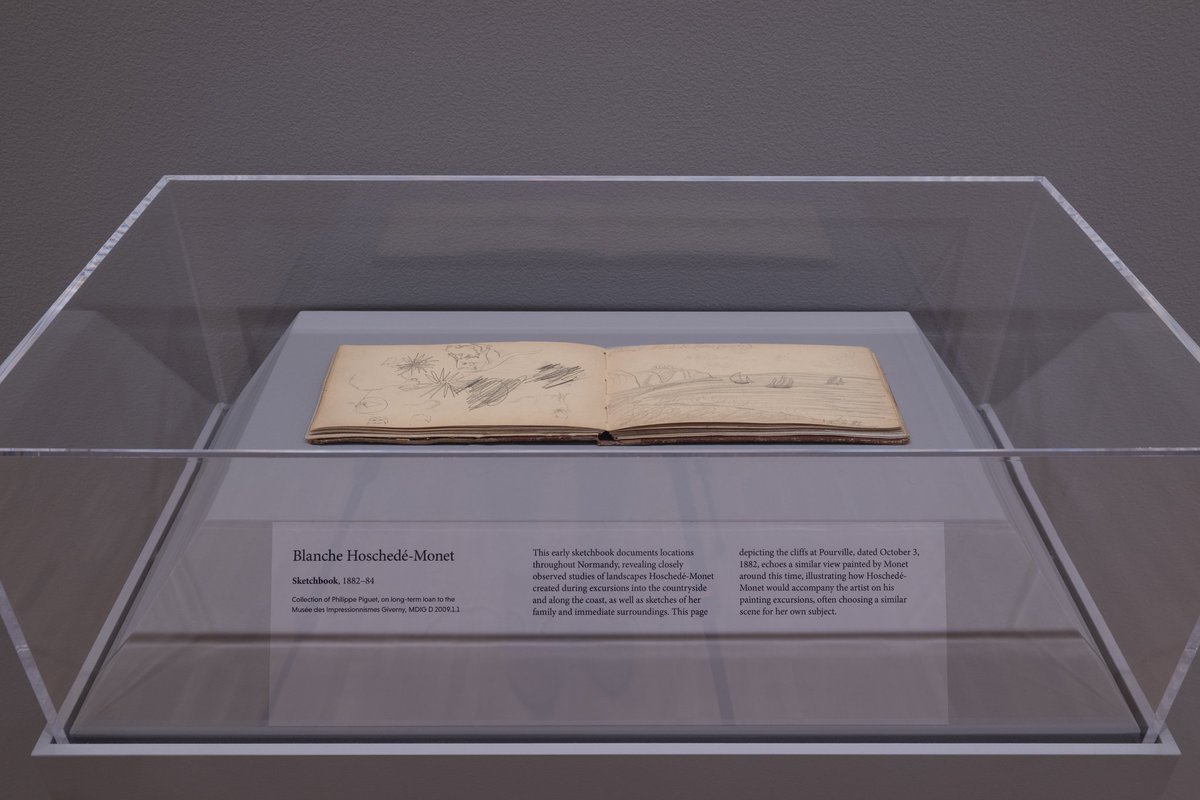 Blanche Hoschedé-Monet
Sketchbook, 1882–84
Collection of Philippe Piguet, on long-term loan to the
Musée des Impressionnismes Giverny, MDIG D 2009.1.1
This early sketchbook documents locations
throughout Normandy, revealing closely
observed studies of landscapes Hoschedé-Monet
created during excursions into the countryside
and along the coast, as well as sketches of her
family and immediate surroundings. This page
depicting the cliffs at Pourville, dated October 3,
1882, echoes a similar view painted by Monet
around this time, illustrating how Hoschedé-
Monet would accompany the artist on his
painting excursions, often choosing a similar
scene for her own subject.